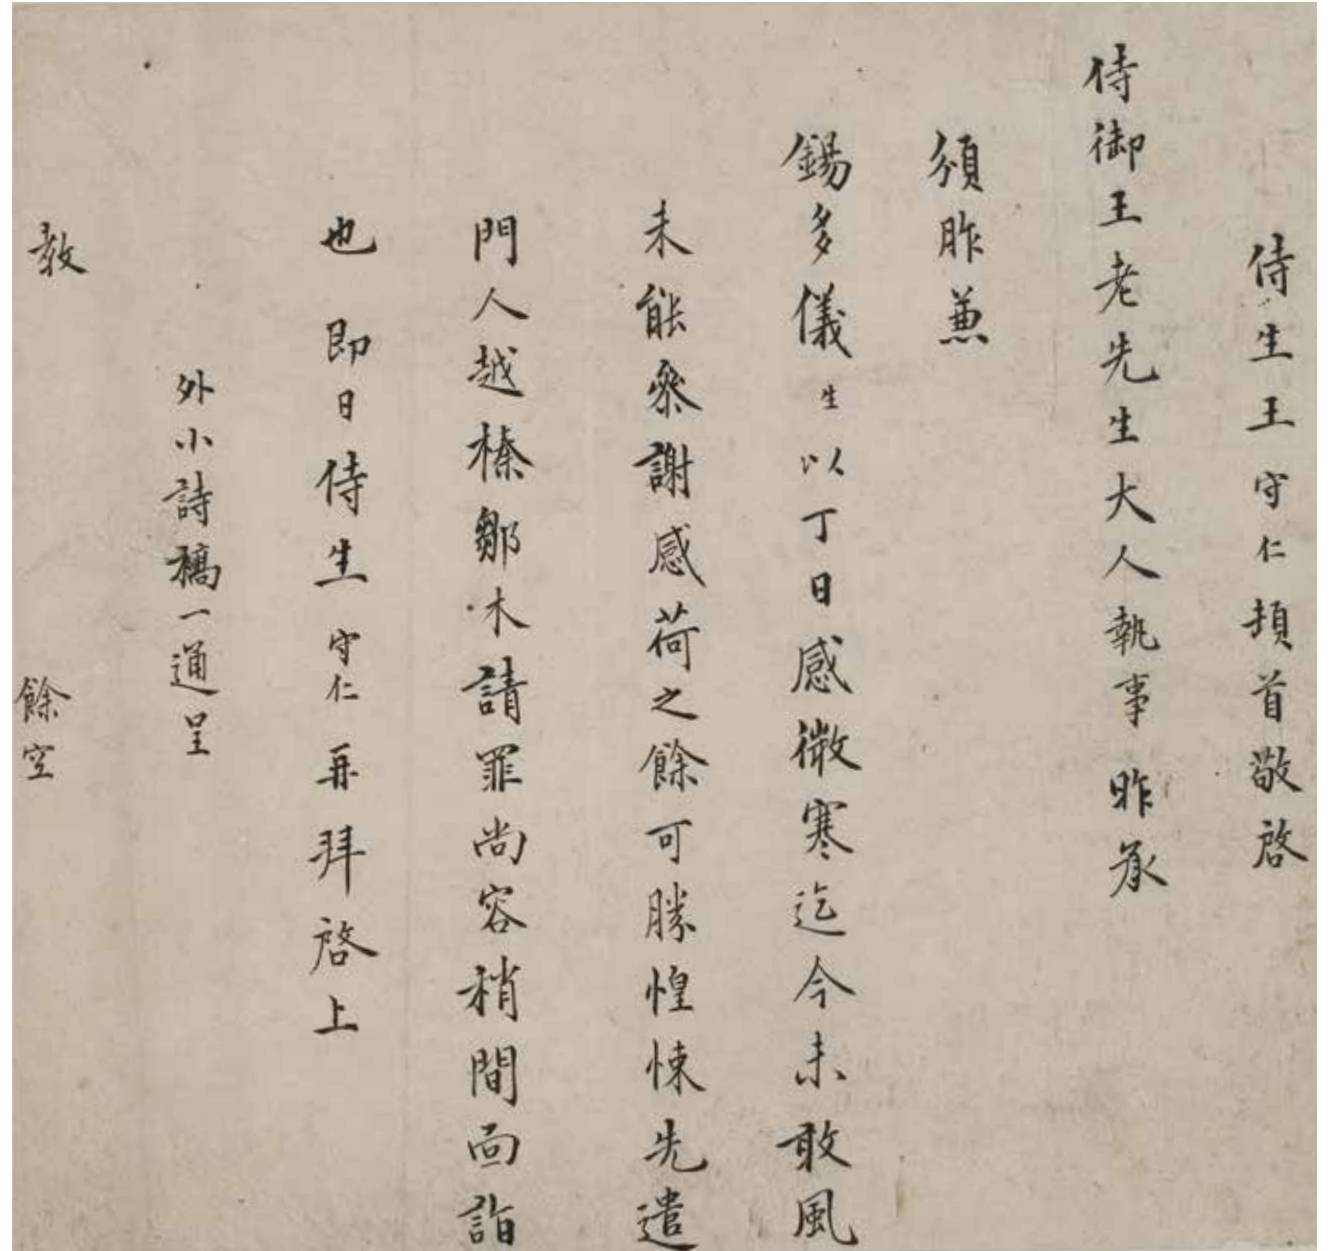 侍生王守仁頓首敬啓
侍御王老先生大人執事昨承
頒胙兼
錫多儀生以丁日感微寒迄今未敢風
未能叅謝感荷之餘可勝惶悚先遣
門人越榛鄒木請罪尚容稍間面詣
也即日侍生守仁再拜啓上
外小詩稿一通呈
教 餘空